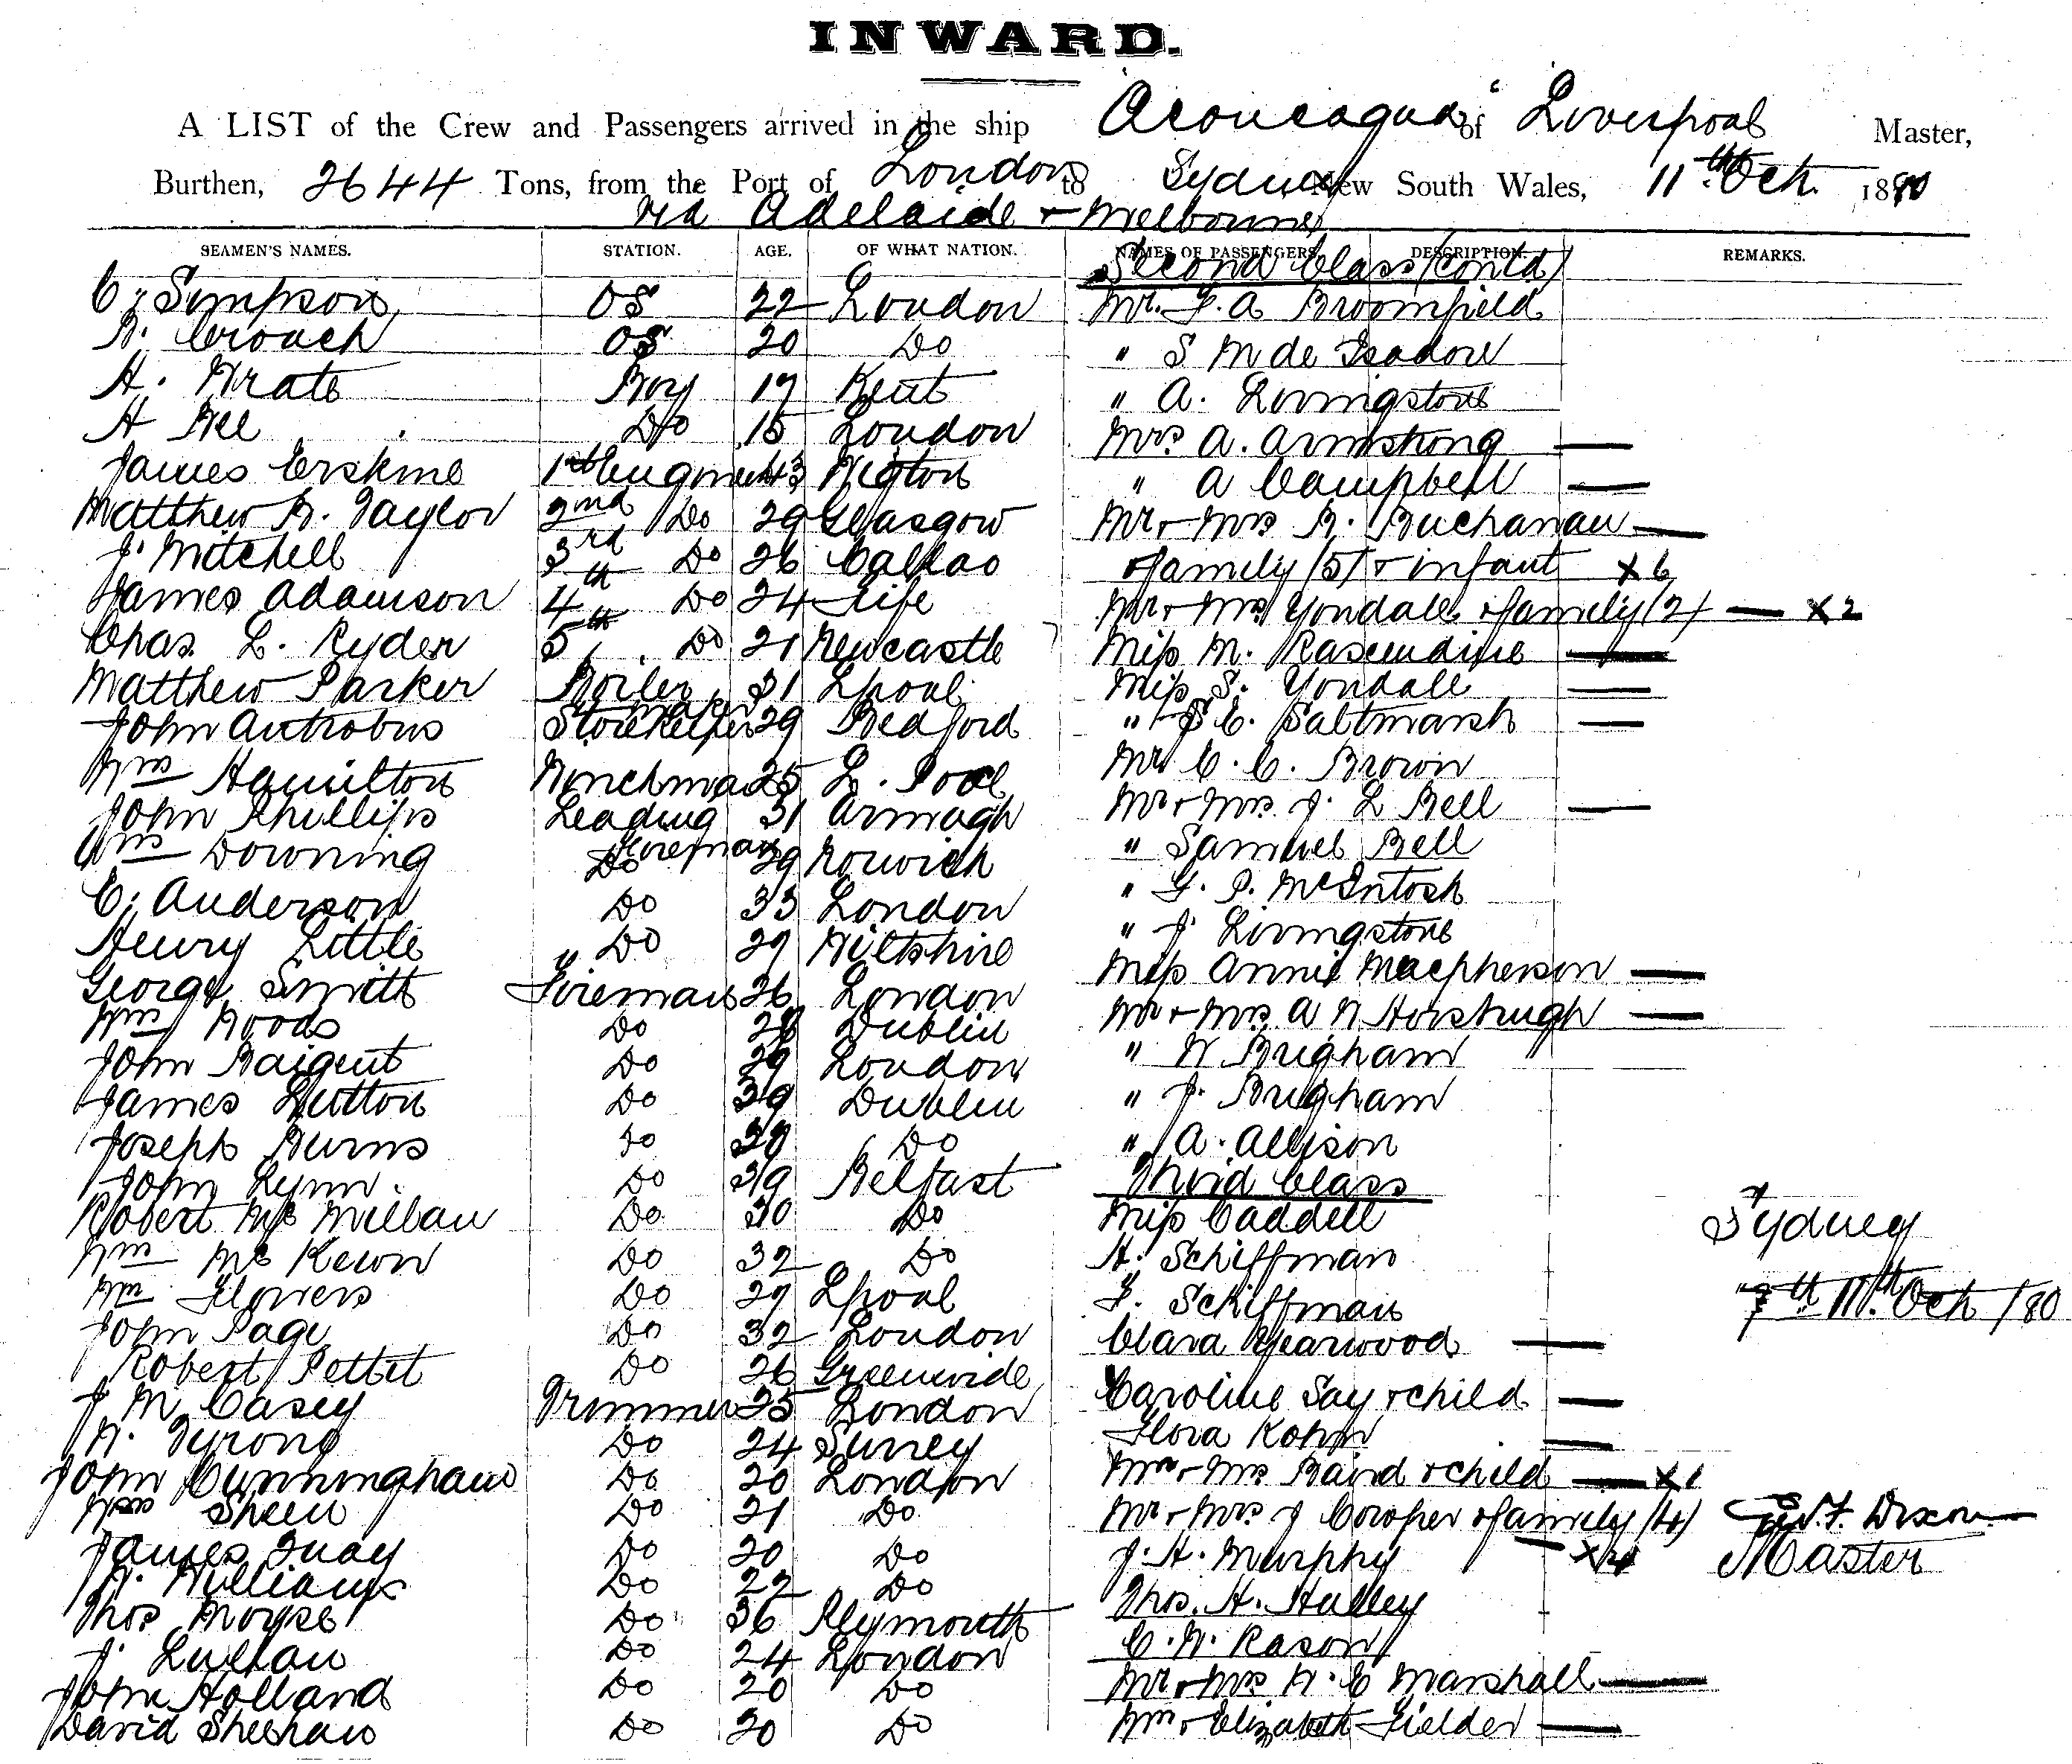 INWARD.
A LIST of the Crew and Passengers arrived in the ship "Aconcagua" of Liverpool Master,
Burthen, 2644 Tons, from the Port of London to Sydney New South Wales, 11th Oct. 1880
via Adelaide & Melbourne
SEAMEN'S NAMES. STATION. AGE. OF WHAT NATION. NAMES OF PASSENGERS. DESCRIPTION. REMARKS.
Second Class (contd)
C. Simpson OS 22 London Mr. F. A Broomfield
R. Crouch OS 20 Do " S M de
H. Boy 17 Kent " A. Livingstone
H Bee Do 15 London Mrs A. Armstrong —
James Erskine 1st Engineer 43 Wigton " A Campbell —
Matthew R. Taylor 2nd Do 29 Glasgow Mr & Mrs R. Buchanan —
J. Mitchell 3rd Do 26 Callao & family (5) & infant x 6
James Adamson 4th Do 24 Fife Mr & Mrs Yondall & family (2) — x 2
Chas. L. Ryder 5th Do 21 Newcastle Miss M. —
Matthew Parker Boiler maker 31 Lpool Miss S. Yondall —
John Antrobus Storekeeper 29 Bedford " S E. Saltmarsh —
Wm Hamilton Winchman 25 L. Pool Mr C. C. Brown
John Phillips Leading Fireman 31 Armagh Mr & Mrs. J. L Bell —
Wm Downing Do 29 Norwich " Samuel Bell
C. Anderson Do 33 London " G. P. McIntosh
Henry Little " Do 27 Wiltshire " J. Livingstone
George Smith Fireman 26 London Miss Annie Macpherson —
Wm Woods Do 28 Dublin Mr & Mrs A N Horsbrugh —
John Baigent Do 29 London " W Brigham
James Hutton Do 39 Dublin " J. Brigham
Joseph Burns Do 38 Do " A. Allison
John Lynn. Do 39 Belfast Third Class
Robert Mc Millan Do 30 Do Miss Caddell
Wm Mc Keown Do 32 Do H. Schiffman Sydney
Wm Flowers Do 27 Lpool F. Schiffman 11th Oct /80
John Page Do 32 London Clara Yearwood —
Robert Pettet Do 26 Greenwide Caroline Say & child —
J M Casey Trimmer 25 London Flora Kohn —
W. Tyrong Do 24 Surrey
John Cunningham Do 20 London Mr & Mrs Baird & child — x 1
Wm Sheen Do 21 Do Mr & Mrs J Cowper & family (4) — x 4 Dixon
James Quay Do 20 Do J. H. Murphy Master
W. Williams Do 22 Do Thos. H. Halley
Thos Moyse Do 36 Plymouth C. W. Rason
J. Do 24 London Mr & Mrs W. E Marshall —
John Holland Do 20 Do Wm & Elizabeth Fielder —
David Sheehan Do 20 Do